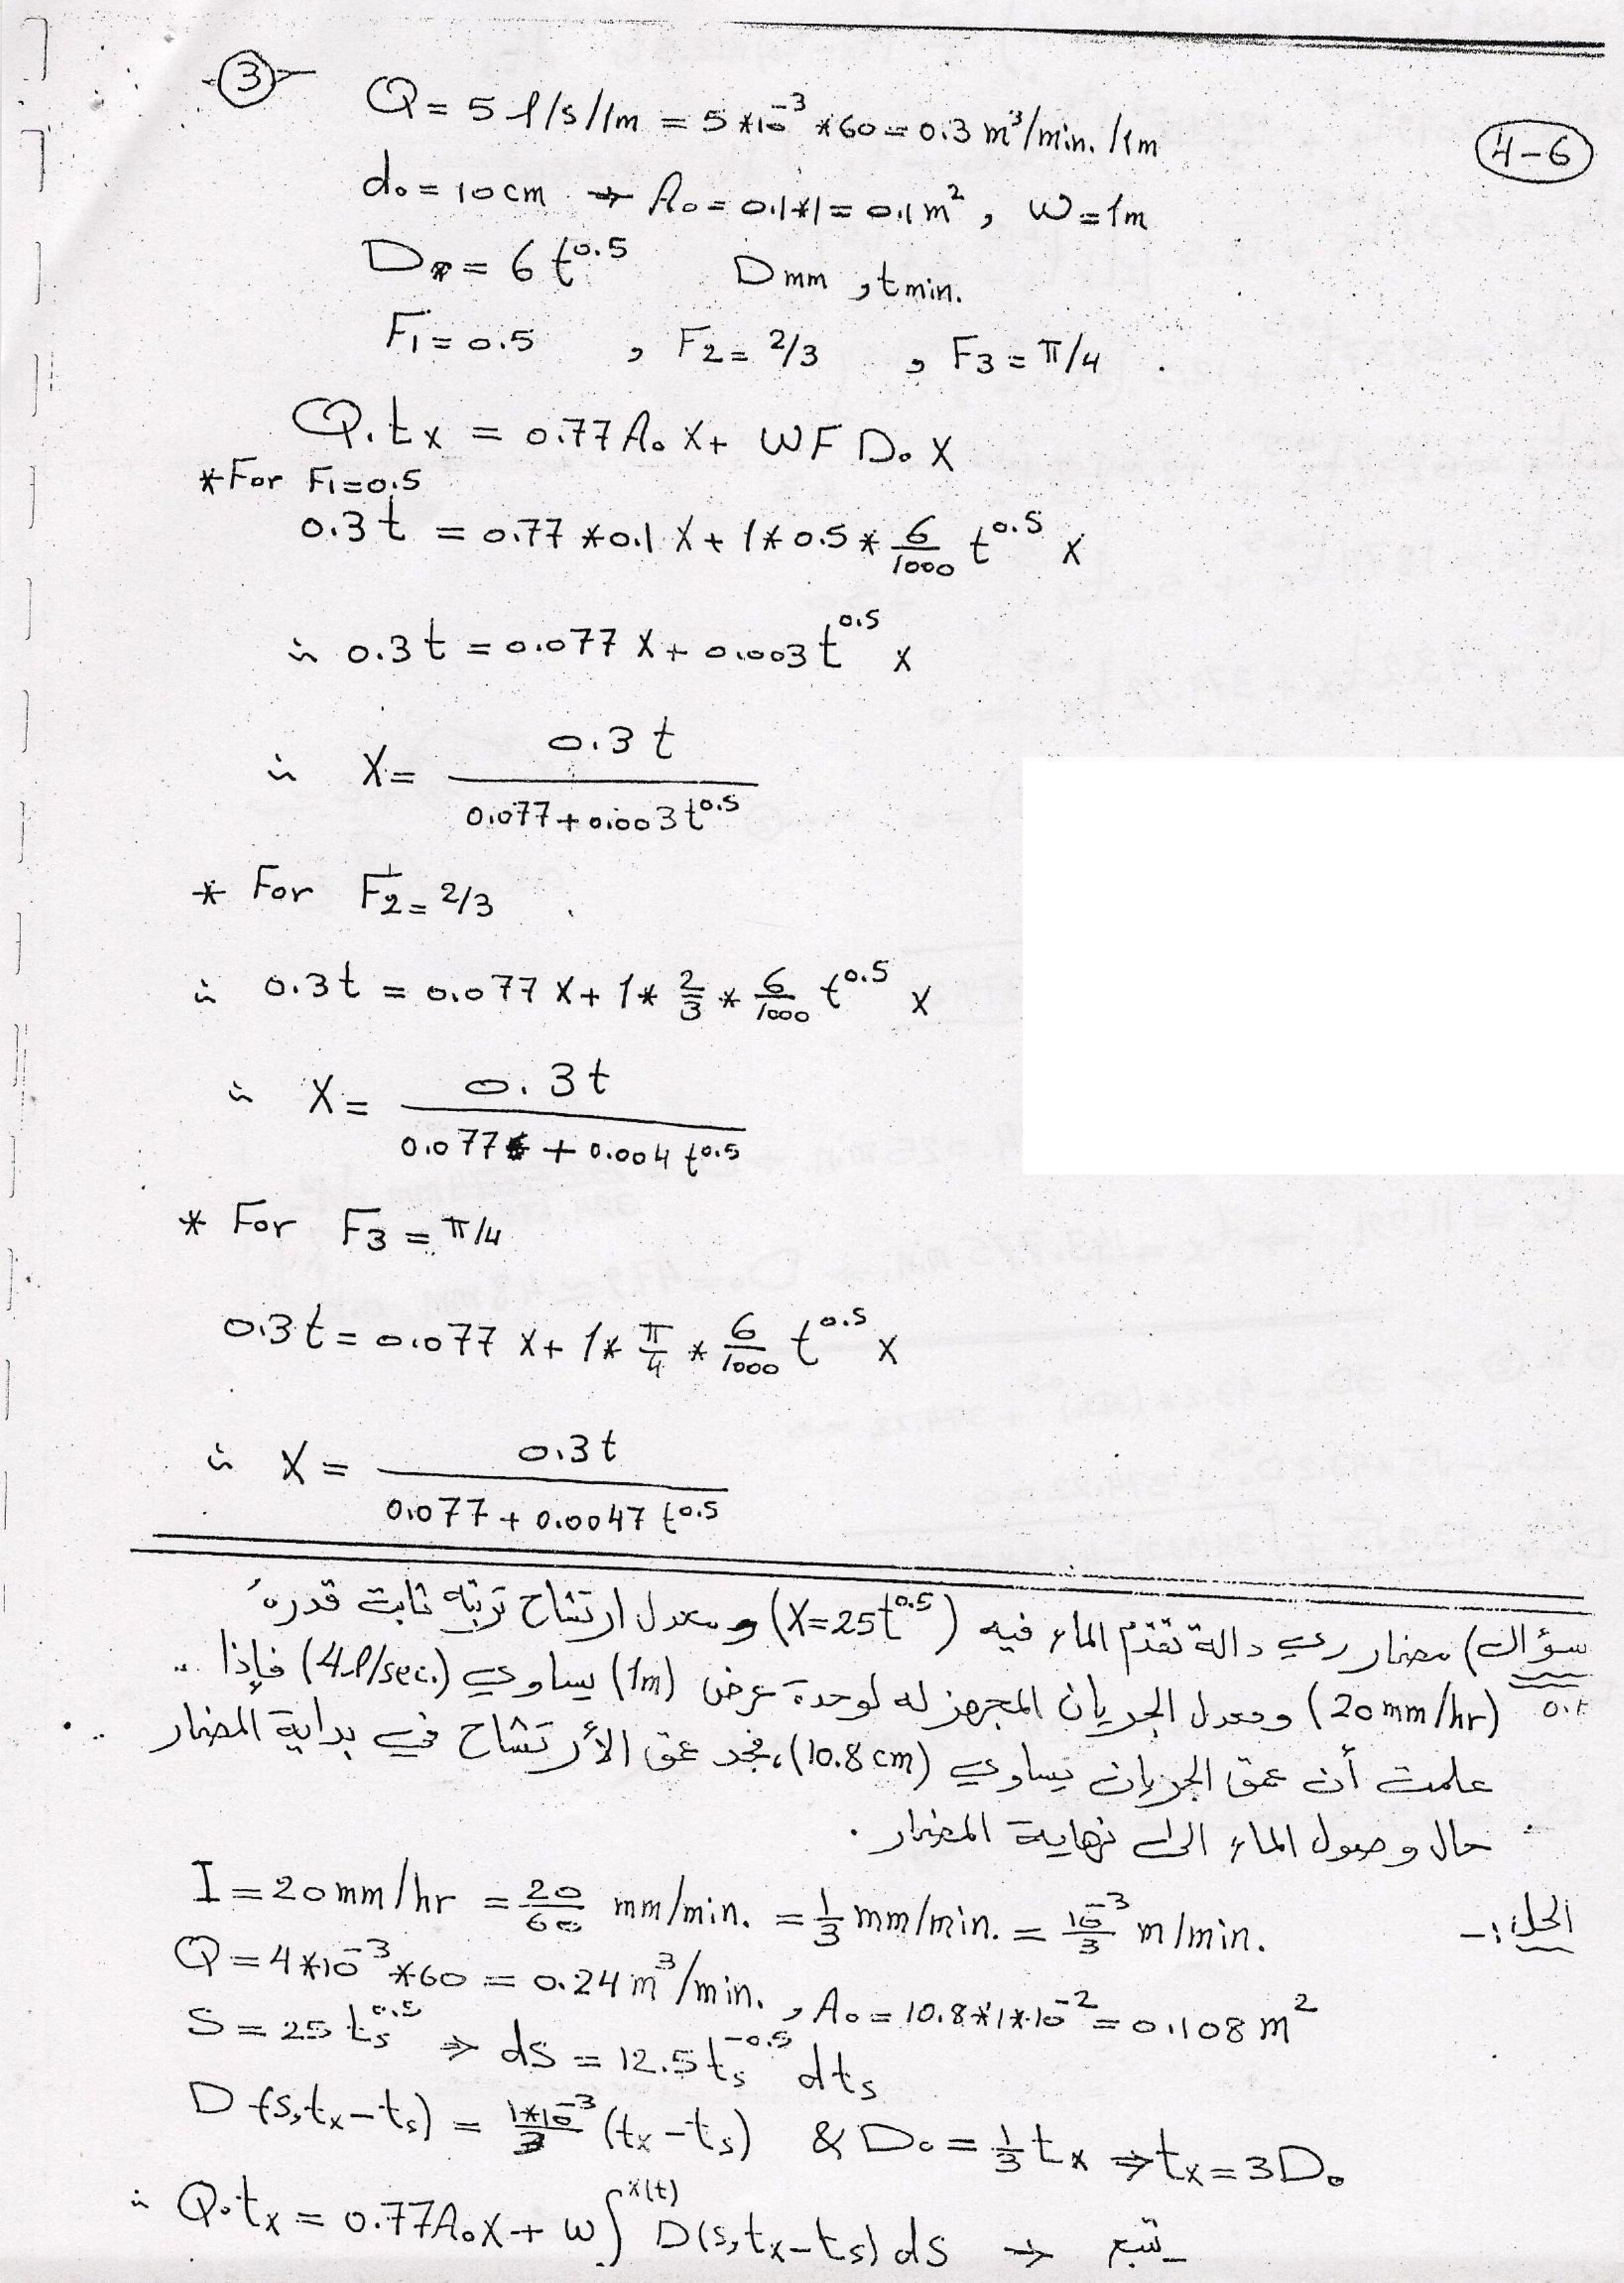 3
Q = 5 l/s/1m = 5*10⁻³*60 = 0.3 m³/min./1m
4-6
d₀ = 10cm ⇒ A₀ = 0.1*1 = 0.1m², W = 1m
D = 6 t^0.5 Dmm, tmin.
F₁ = 0.5 , F₂ = 2/3 , F₃ = π/4 .
Q.tx = 0.77 A₀ X + WF D₀ X
*For F₁=0.5
0.3t = 0.77*0.1 X + 1*0.5*6/1000 t^0.5 X
∴ 0.3t = 0.077 X + 0.003 t^0.5 X
∴ X = 0.3t / (0.077+0.003 t^0.5)
* For F₂ = 2/3
∴ 0.3t = 0.077 X + 1*2/3*6/1000 t^0.5 X
∴ X = 0.3t / (0.077 + 0.004 t^0.5)
* For F₃ = π/4
0.3t = 0.077 X + 1*π/4*6/1000 t^0.5 X
∴ X = 0.3t / (0.077 + 0.0047 t^0.5)
سؤال) مضمار ري دالة تقدم الماء فيه (X=25t^0.5) ومعدل ارتشاح تربته ثابت قدره
(20mm/hr) ومعدل الجريان المجهز له لوحدة عرض (1m) يساوي (4l/sec.) فإذا
علمت أن عمق الجريان يساوي (10.8cm)، فجد عمق الأرتشاح في بداية المضمار
حال وصول الماء الى نهاية المضمار .
الحل:-
I = 20mm/hr = 20/60 mm/min. = 1/3 mm/min. = 10⁻³/3 m/min.
Q = 4*10⁻³*60 = 0.24 m³/min. , A₀ = 10.8*1*10⁻² = 0.108 m²
S = 25 ts^0.5 ⇒ dS = 12.5 ts^-0.5 dts
D(s,tx-ts) = 1*10⁻³/3 (tx-ts) & D₀ = 1/3 tx ⇒ tx = 3D₀
∴ Q.tx = 0.77A₀X + W ∫^x(t) D(s,tx-ts) dS → يتبع